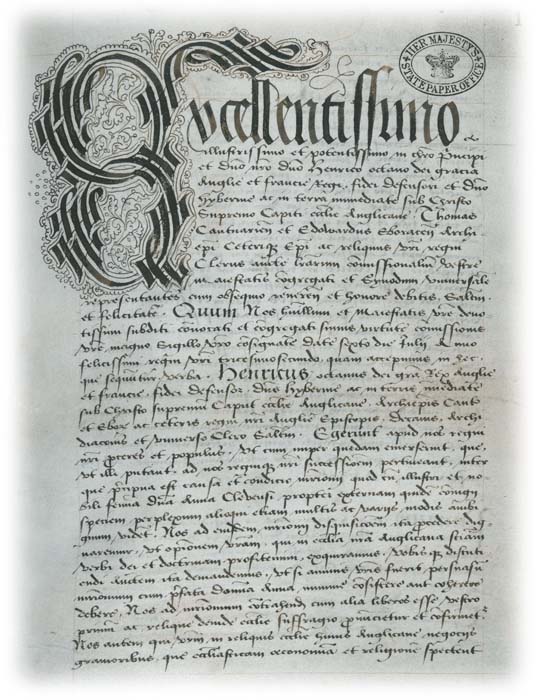 HER MAJESTY'S
STATE PAPER OFFICE
Excellentissimo
illustrissimo et potentissimo in chro Principi
et dno nro dno Henrico octavo dei gracia
Anglie et francie Regi, fidei defensori et dno
hybernie ac in terra immediate sub Christo
Supremo Capiti ecclie Anglicane Thomas
Cantuarien et Edowardus Eboracen Archi
epi Ceteriqz Epi ac reliquus vri regni
Clerus aucte lrarum comissionalium vestre
maiestatis congregati et Synodum universale
representantes cum obsequio reveren et honore debitis, Saltm
et felicitate. Quum Nos humillimi et Maiestatis vre devo
tissimi subditi convocati et cogregati sumus virtute comissionis
vre, magno Sigillo vro consignate date sexto die Julij Anno
felicissimi regni vri tricesimosecundo, quam accepimus in hec
que sequuntur verba. Henricus octavus dei gra Rex Anglie
et francie, fidei defensor, dns hybernie ac in terris imediate
sub Christo supremu Caput ecclie Anglicane. Archiepis Cant
et Ebor ac ceteris regni nri Anglie Episcopis, Decanis, Archi
diaconis et universo Clero Saltm. Egerunt apud nos regni
nri proceres et populus, Ut cum nuper quedam emerserint, que,
ut illi putant, ad nos regniqz nri successionem pertineant, inter
que precipua est causa et condicio mrimonij quod cu illustri et no
bili femina dna Anna Clevensi, propter externam quide coniugij
speciem, perplexum alioqui etiam multis ac varijs modis ambi
guum videt. Nos ad eiusdem mrimonij disquisicoem ita procedere dig
naremur, ut opinionem vram, qui in ecclia nra Anglicana sciam
verbi dei et doctrinam profitemini, exquiramus, vobisqz discuti
endi auctem ita demandemus, ut si animis vris fuerit persuasu
mrimonium cum prefata domina Anna, minime consistere aut coherere
debere, Nos ad mrimonium contrahend cum alia liberos esse, vestro
primum ac relique deinde ecclie suffragio pronuncietur et confirmet.
Nos autem qui vrm in reliquis ecclie huius Anglicane negocijs
gravioribus, que ecclesiasticam oeconomia et religione spectent